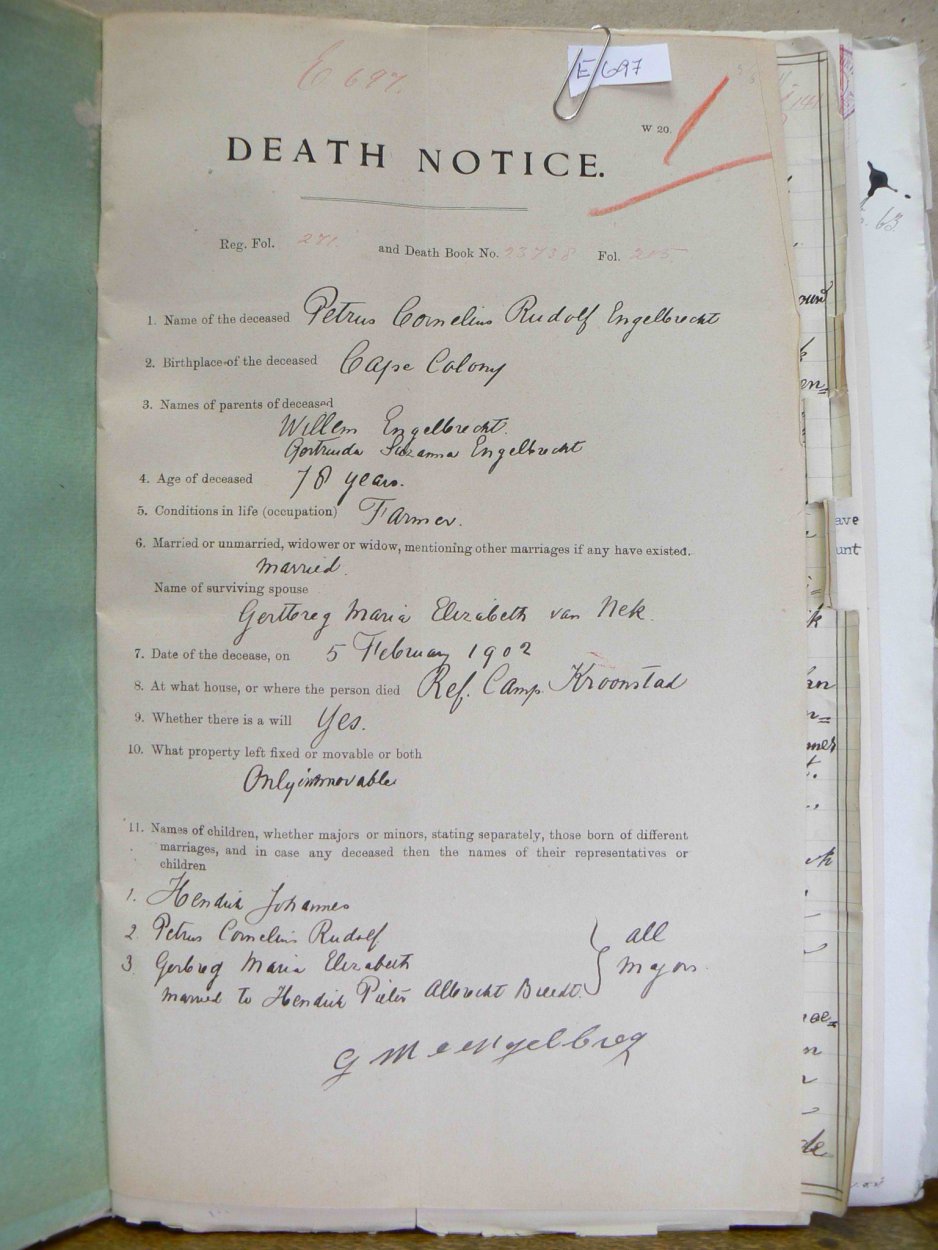 E 697.
E 697
W 20.
1
DEATH NOTICE.
Reg. Fol. 271. and Death Book No. 23738 Fol. 215
1. Name of the deceased Petrus Cornelius Rudolf Engelbrecht
2. Birthplace of the deceased Cape Colony
3. Names of parents of deceased
Willem Engelbrecht.
Gertruida Suzanna Engelbrecht
4. Age of deceased 78 years.
5. Conditions in life (occupation) Farmer.
6. Married or unmarried, widower or widow, mentioning other marriages if any have existed.
married.
Name of surviving spouse
Gertbreg Maria Elizabeth van Nek.
7. Date of the decease, on 5 February 1902
8. At what house, or where the person died Ref. Camp Kroonstad
9. Whether there is a will Yes.
10. What property left fixed or movable or both
Only immovable
11. Names of children, whether majors or minors, stating separately, those born of different
marriages, and in case any deceased then the names of their representatives or
children
1. Hendrik Johannes
2 Petrus Cornelius Rudolf all
3 Gerbreg Maria Elizabeth majors.
married to Hendrik Pieter Albrecht Breedt.
G M e engelbreg
ave
unt
63